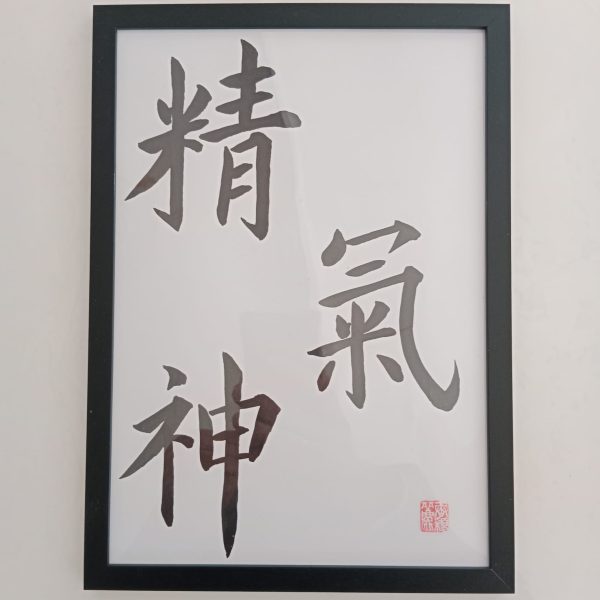 精
氣
神